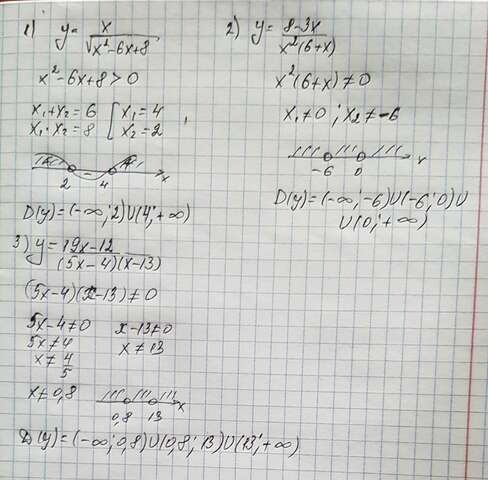 1) y = x / √(x²-6x+8)
x²-6x+8>0
x₁+x₂=6 [x₁=4
x₁·x₂=8 [x₂=2 ,
2 - 4 x
D(y)=(-∞;2)∪(4;+∞)
2) y = 8-3x / x²(6+x)
x²(6+x)≠0
x₁≠0; x₂≠-6
-6 0 x
D(y)=(-∞;-6)∪(-6;0)∪
∪(0;+∞)
3) y = 19x-12 / (5x-4)(x-13)
(5x-4)(x-13)≠0
5x-4≠0 x-13≠0
5x≠4 x≠13
x≠4/5
x≠0,8
0,8 13 x
D(y)=(-∞;0,8)∪(0,8;13)∪(13;+∞)